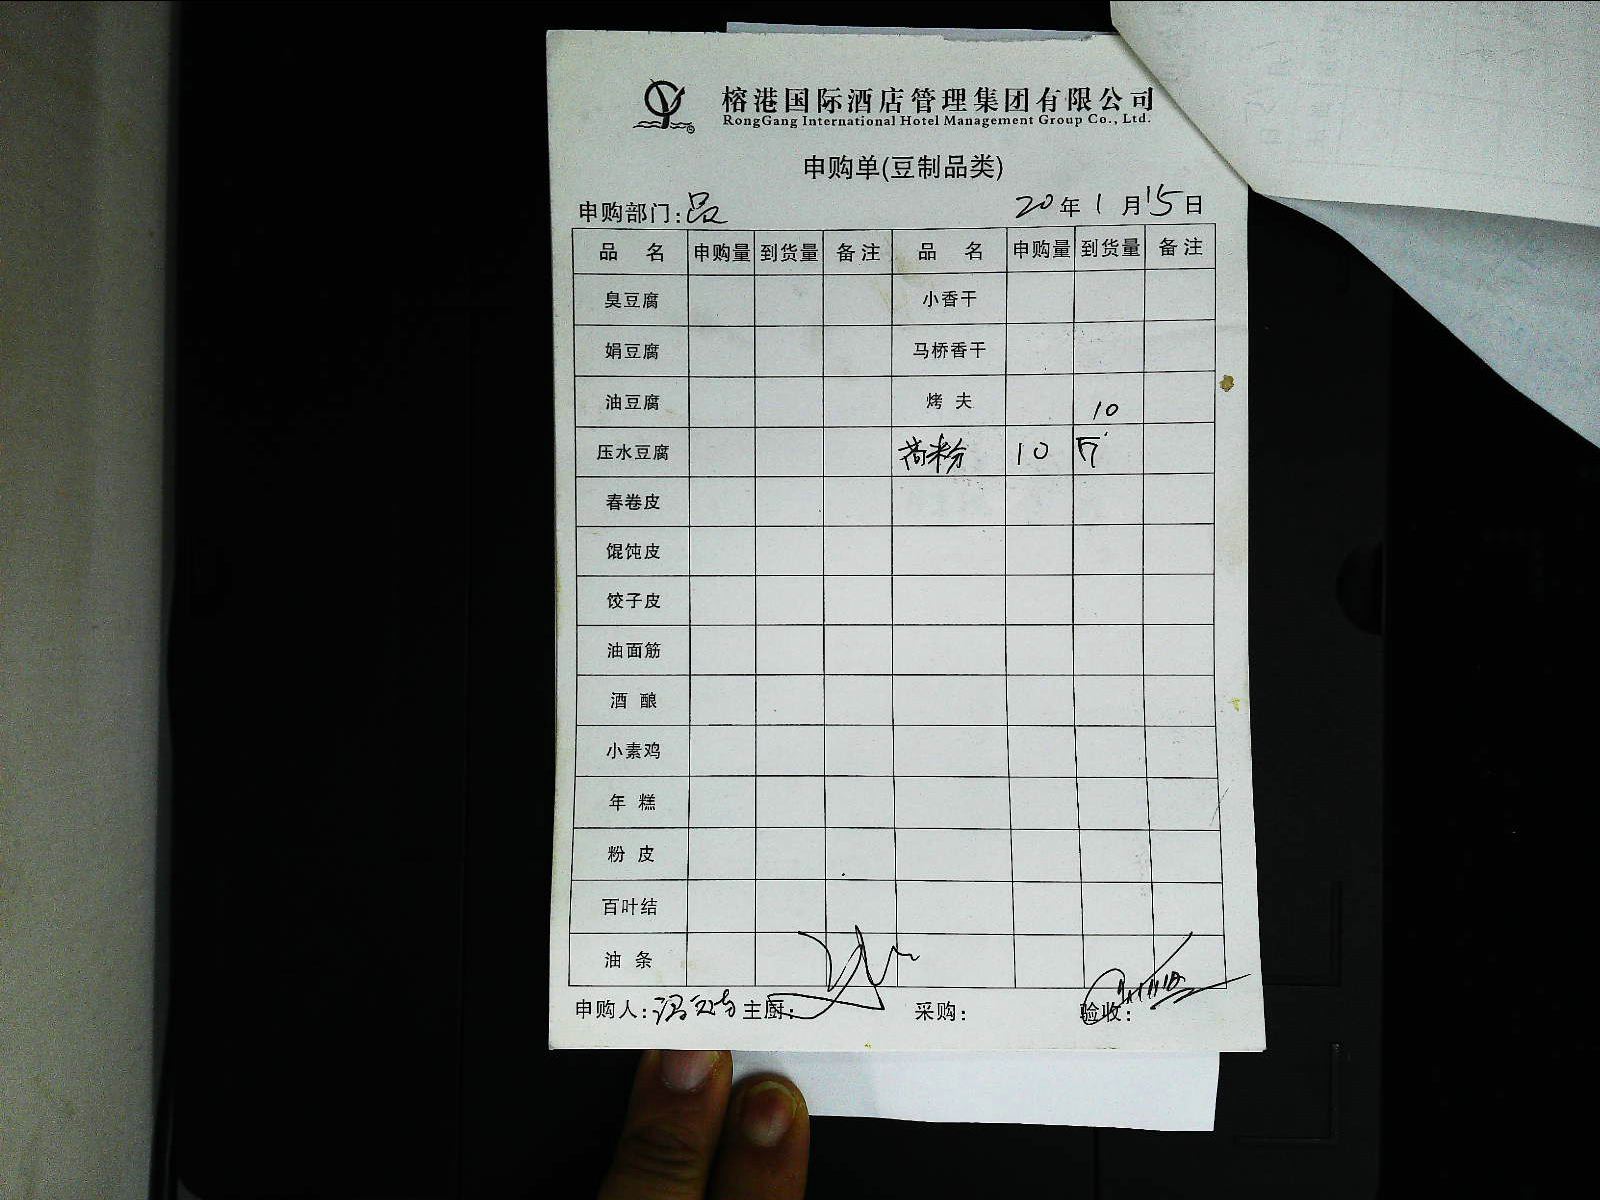 榕港国际酒店管理集团有限公司
RongGang International Hotel Management Group Co., Ltd.
申购单(豆制品类)
申购部门: 20年1月15日
品名 申购量 到货量 备注 品名 申购量 到货量 备注
臭豆腐 小香干
娟豆腐 马桥香干
油豆腐 烤夫 10
压水豆腐 粉 10
春卷皮
馄饨皮
饺子皮
油面筋
酒酿
小素鸡
年糕
粉皮
百叶结
油条
申购人: 主厨: 采购: 验收: